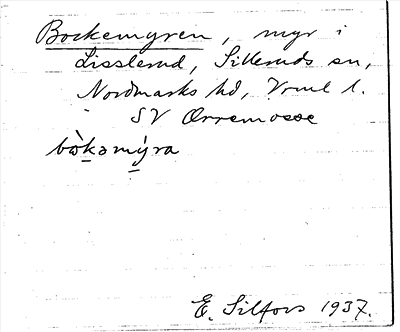 Bockemyren, myr i
Lisslerud, Silleruds sn,
Nordmarks hd, Vrml l.
SV Orremosse
bòkəmýra
E. Silfors 1937.